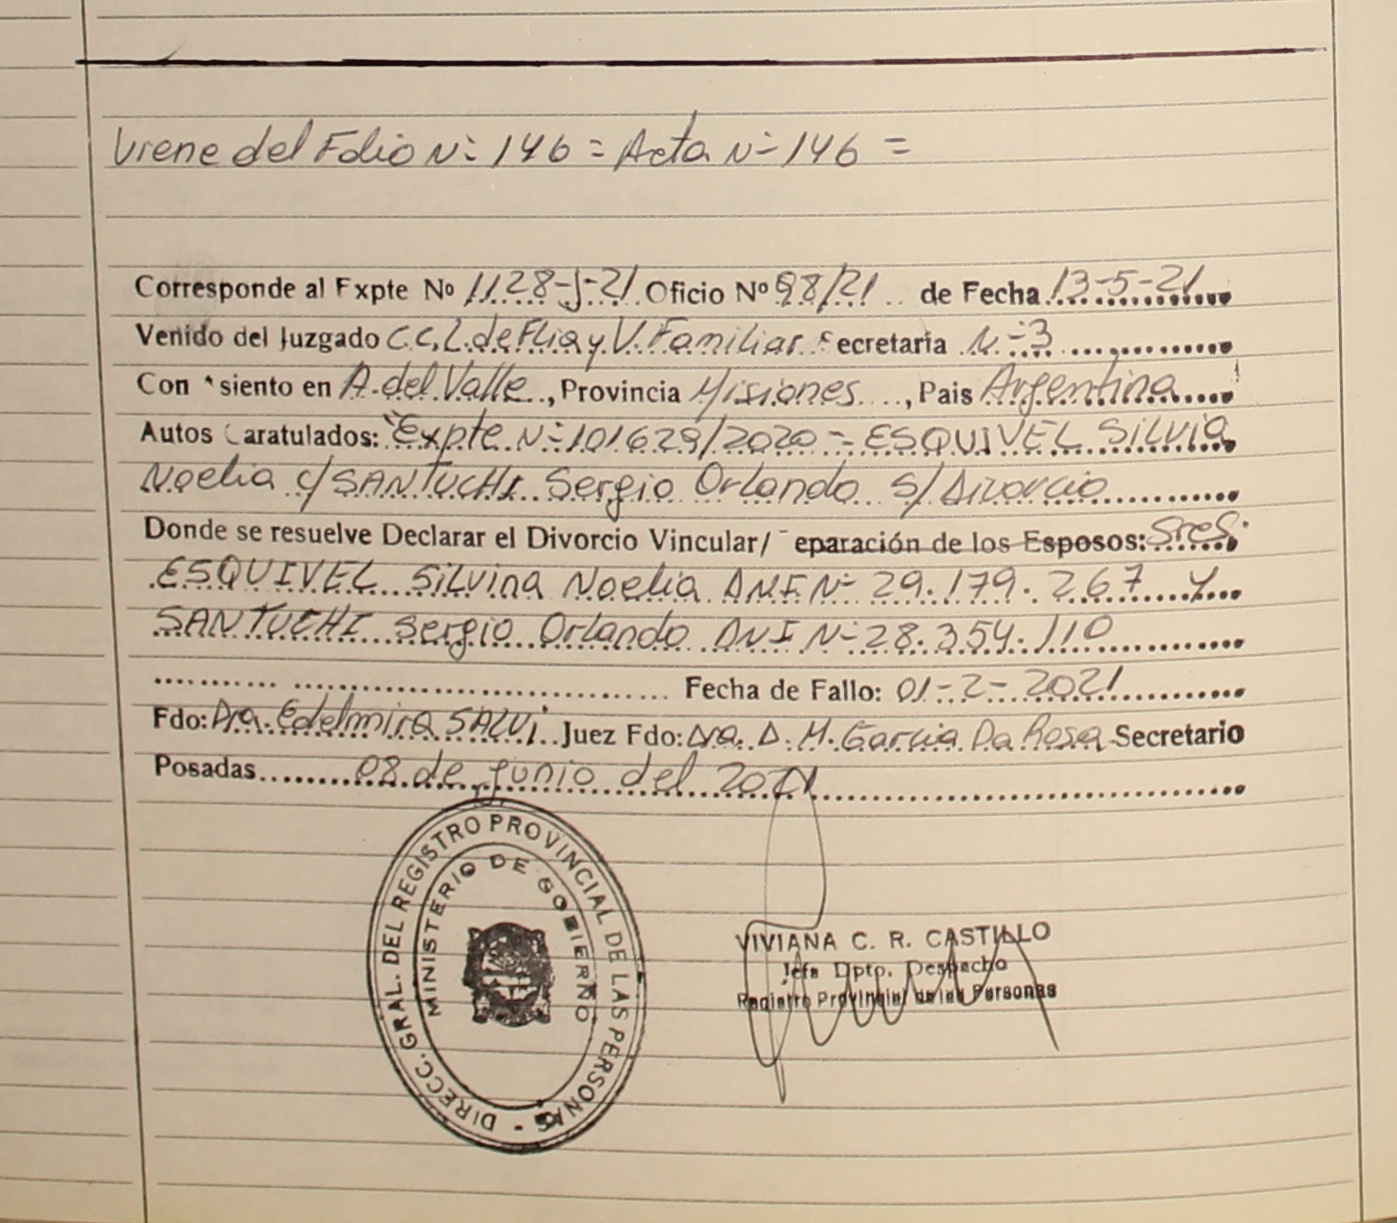 Viene del Folio Nº 146 = Acta Nº 146 =
Corresponde al Expte Nº 1128-J-21 Oficio Nº 98/21 de Fecha 13-5-21
Venido del Juzgado C.C.L. de Flia y V. Familiar Secretaria Nº 3
Con Asiento en A. del Valle, Provincia Misiones, Pais Argentina
Autos Caratulados: "Expte Nº 101629/2020 = ESQUIVEL Silvia
Noelia c/ SANTUCHI Sergio Orlando s/ Divorcio
Donde se resuelve Declarar el Divorcio Vincular/ Separación de los Esposos: Sres.
ESQUIVEL Silvina Noelia DNI Nº 29.179.267 y
SANTUCHI Sergio Orlando DNI Nº 28.354.110
Fecha de Fallo: 01-2-2021
Fdo: Dra. Edelmira SALVI Juez Fdo: Dra. D. M. Garcia Da Rosa Secretario
Posadas 08 de junio del 2021
DIRECC. GRAL. DEL REGISTRO PROVINCIAL DE LAS PERSONAS -
MINISTERIO DE GOBIERNO
VIVIANA C. R. CASTILLO
Jefa Dpto. Despacho
Registro Provincial de las Personas